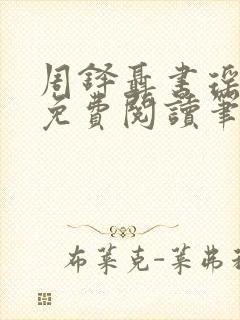 周鐸聶書瑤
免費閱讀筆
布萊克-萊弗利